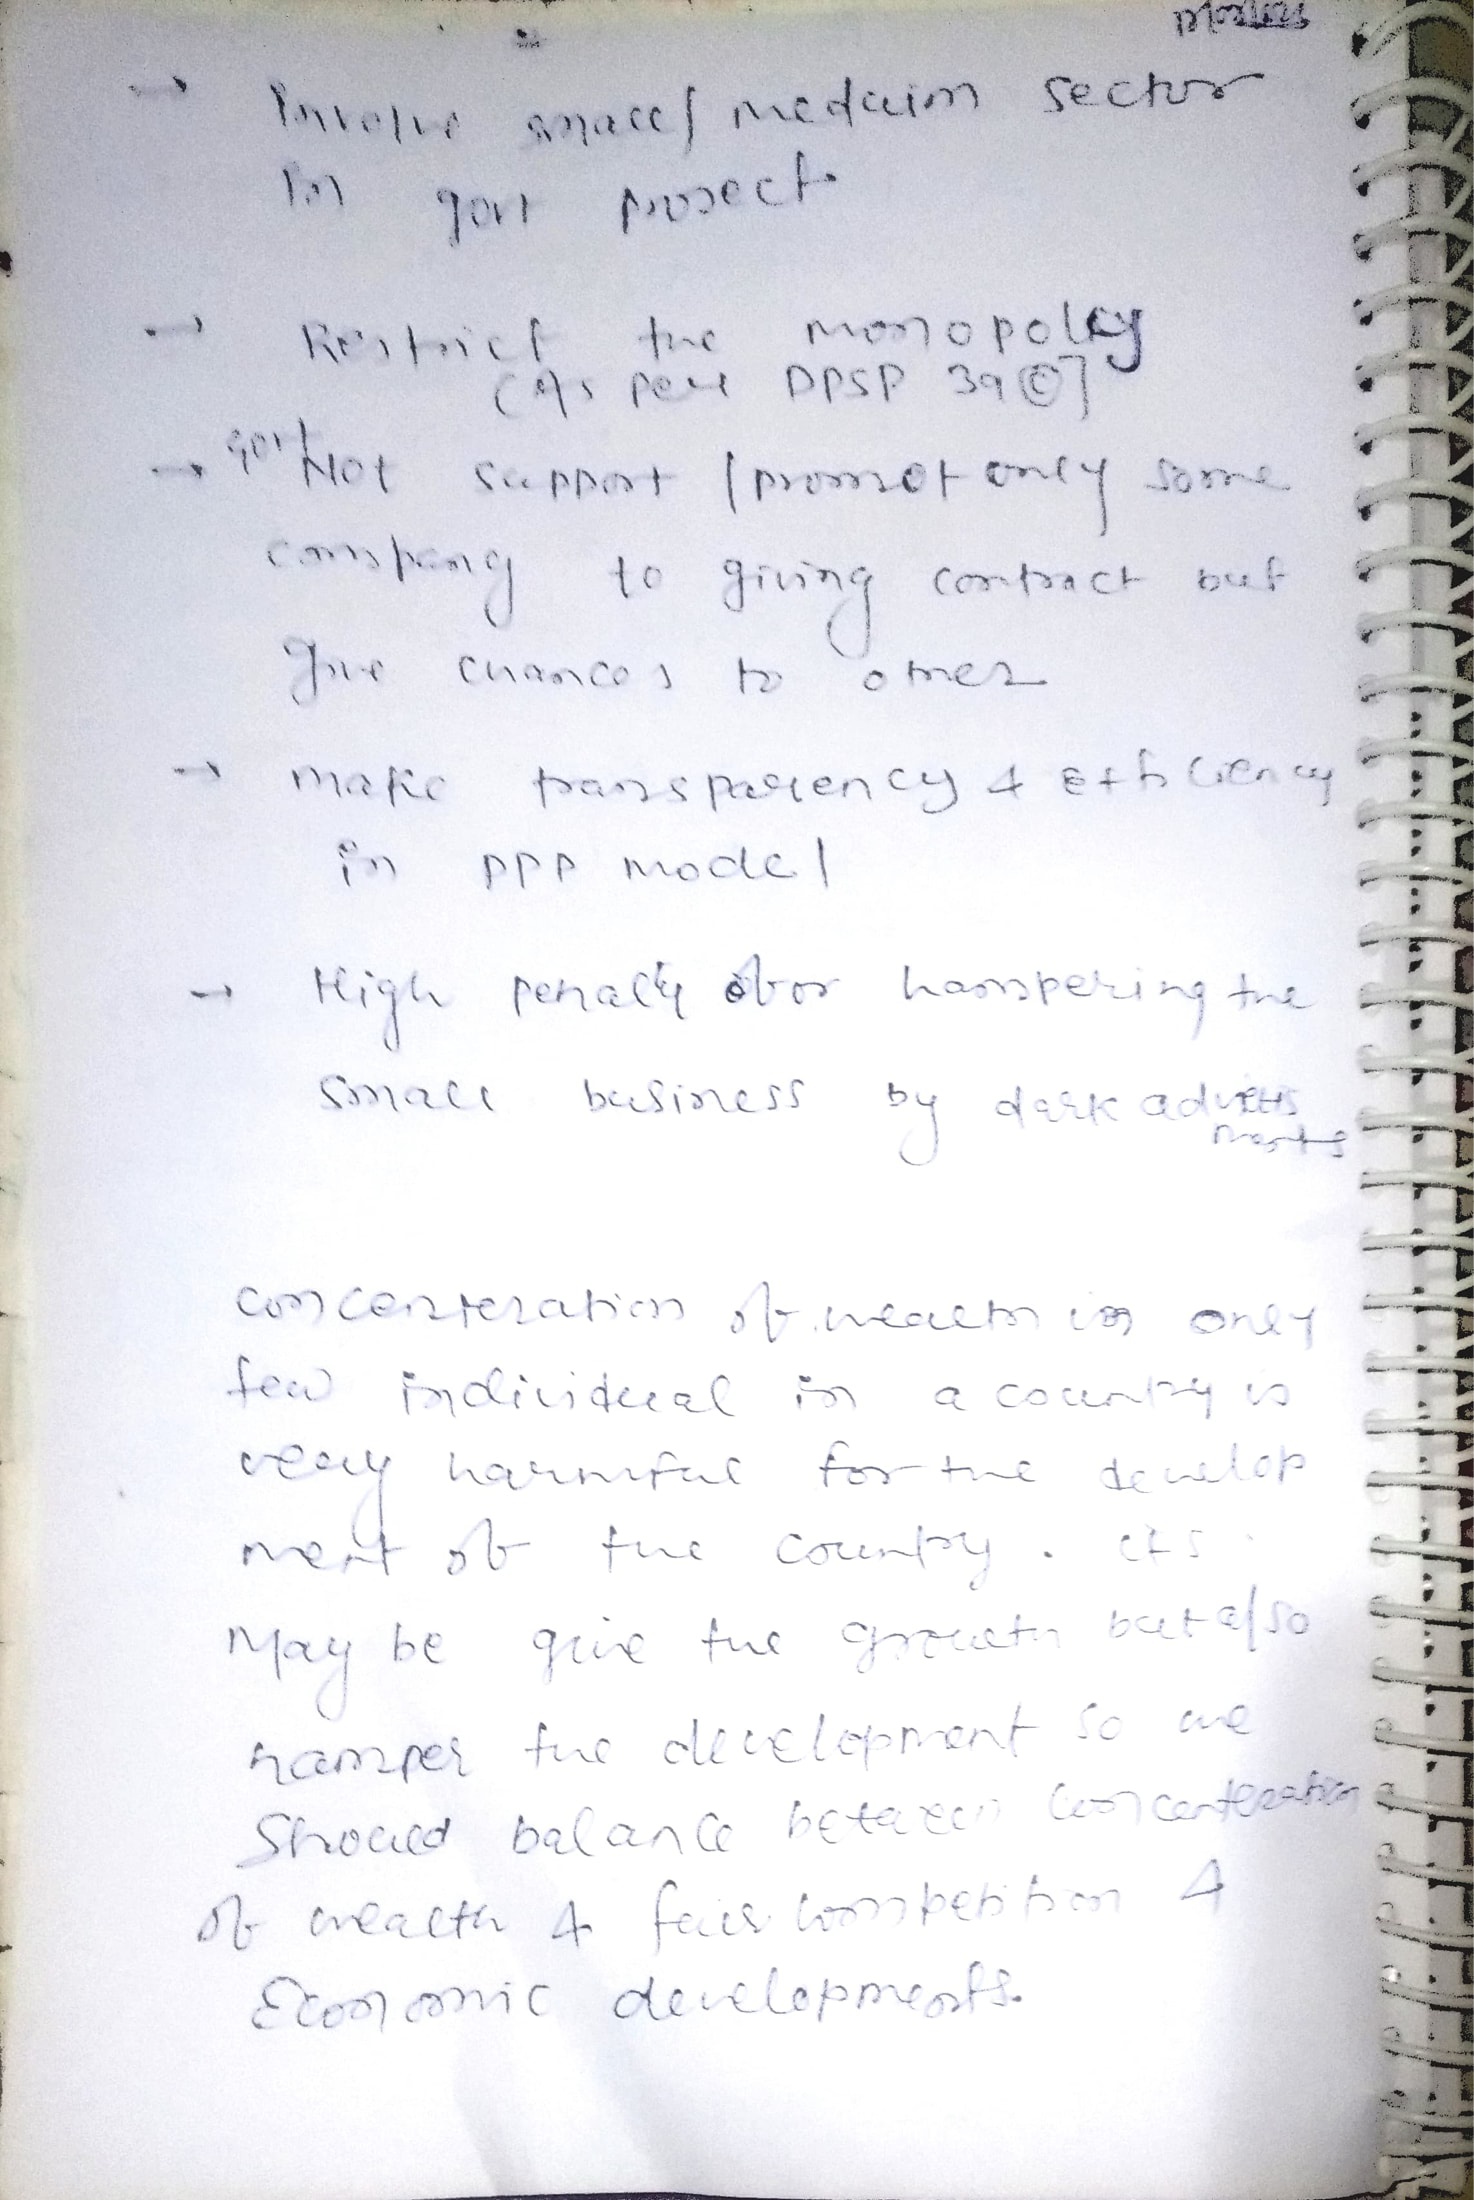 → Involve small/ medium sector
in govt project
→ Restrict the monopoly
(As per DPSP 39 ©]
→ govt Not support / promot only some
company to giving contract but
give chances to other
→ make transparency & efficiency
in PPP model
→ High penalty for hampering the
small business by dark advetis
ments
concenteration of wealth in only
few individual in a country is
very harmful for the develop
ment of the country. its
May be give the growth but also
hamper the development so we
should balance between concenteration
of wealth & fair competition &
Economic developments.